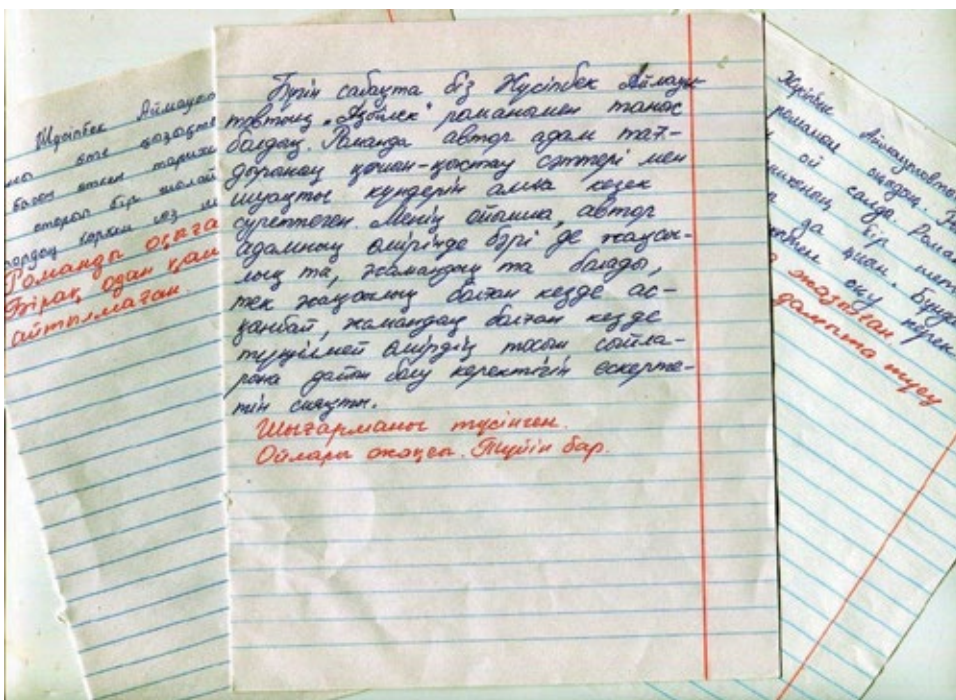 Жүсіпбек Аймауто
өте қозақте
басып өткен тарихи
бір шолай
көркем сөз
Романды оқыға
Бірақ одан қан
айтылмаған
Бүгін сабақта біз Жүсіпбек Аймауы-
товтың „Ақбілек“ романымен таныс
болдық. Романда автор адам тағ-
дырының қиын-қыстау сәттері мен
шуақты күндерін алма кезек
суреттеген. Менің ойымша, автор
адамның өмірінде бәрі де жақсы-
лық та, жамандық та болады,
тек жақсылық болған кезде ас-
қанбай, жамандық болған кезде
түңілмей өмірдің тосын сыйла-
рына дайын болу керектігін ескерте-
тін сияқты.
Шығарманы түсінген.
Ойлары жақсы. Түйін бар.
Жүсіпбек Аймауытовтың
романын оқыдық.
ой салды. Роман
да бір
қиын. Бұндай
оку
жазылған
дамыта түсу